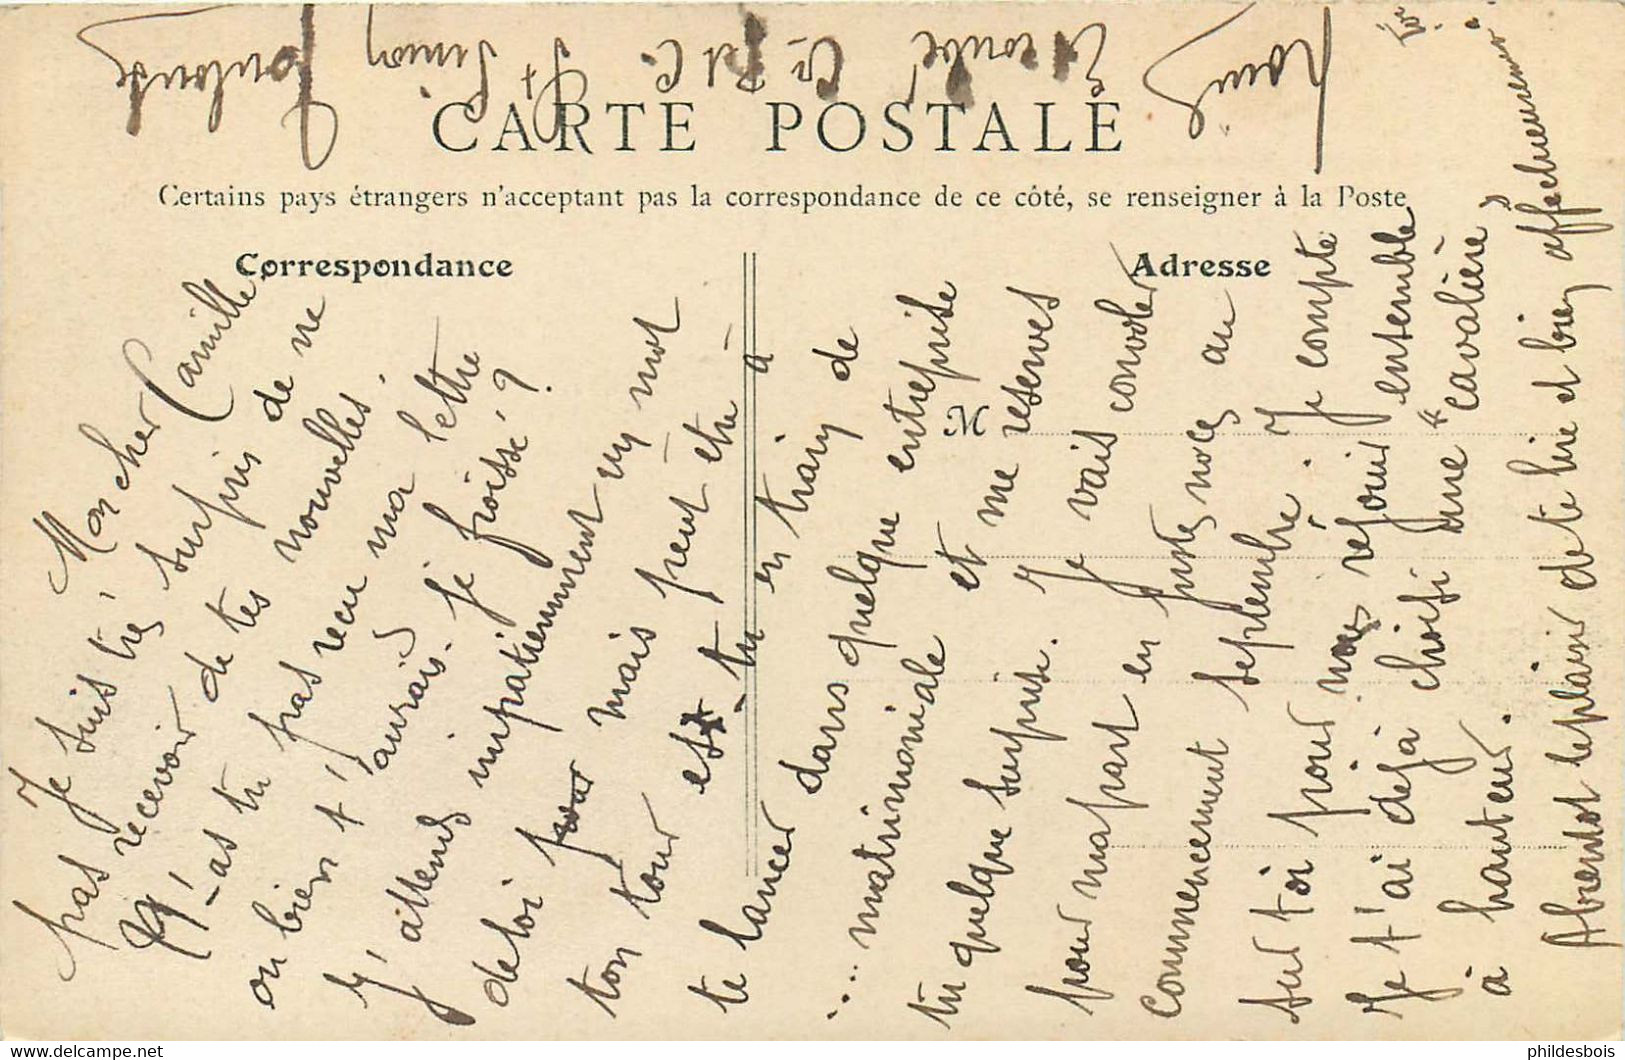 CARTE POSTALE
Certains pays étrangers n'acceptant pas la correspondance de ce côté, se renseigner à la Poste
Correspondance
Adresse
M
Mon cher Camille
Je suis très surpris de ne
pas recevoir de tes nouvelles.
N'-as tu pas recu ma lettre
ou bien t'aurais-je froissé ?
J'attends impatiemment un mot
de toi mais peut etre à
ton tour est-tu en train de
te lancer dans quelque entreprise
... matrimoniale et me reserves
tu quelque surprise. Je vais convoler
pour ma part en justes noces au
commencement septembre. Je compte
sur toi pour nous réjouir ensemble
Je t'ai dejà choisi une "cavalière"
à hauteur.
A bientot le plaisir de te lire et bien affectueusement à
toi.
Louis
St Simon
Toulouse
phildesbois